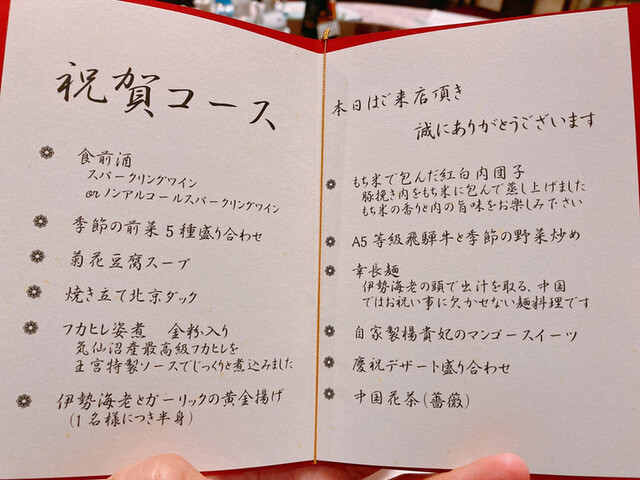 祝賀コース
食前酒
スパークリングワイン
or ノンアルコールスパークリングワイン
季節の前菜5種盛り合わせ
菊花豆腐スープ
焼き立て北京ダック
フカヒレ姿煮 金粉入り
気仙沼産最高級フカヒレを
王宮特製ソースでじっくりと煮込みました
伊勢海老とガーリックの黄金揚げ
(1名様につき半身)
本日はご来店頂き
誠にありがとうございます
もち米で包んだ紅白肉団子
豚挽き肉をもち米に包んで蒸し上げました
もち米の香りと肉の旨味をお楽しみ下さい
A5等級飛騨牛と季節の野菜炒め
幸長麺
伊勢海老の頭で出汁を取る、中国
ではお祝い事に欠かせない麺料理です
自家製楊貴妃のマンゴースイーツ
慶祝デザート盛り合わせ
中国花茶(薔薇)